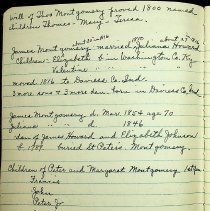 Will of Thos Montgomery proved 1800 named
children Thomas - Mary - Teresa.
James Montgomery married Juliana Howard
Children - Elizabeth b in Washington Co. Ky.
Valentine " " "
moved 1816 to Daviess Co. Ind.
3 more sons & 3 more dau. born in Daviess Co.
James Montgomery d. Mar. 1854 age 70
Juliana d. 1846
dau of James Howard and Elizabeth Johnson
b 1787 buried St Peters. Montgomery.
Children of Peter and Margaret Montgomery
Francis
John
Peter Jr